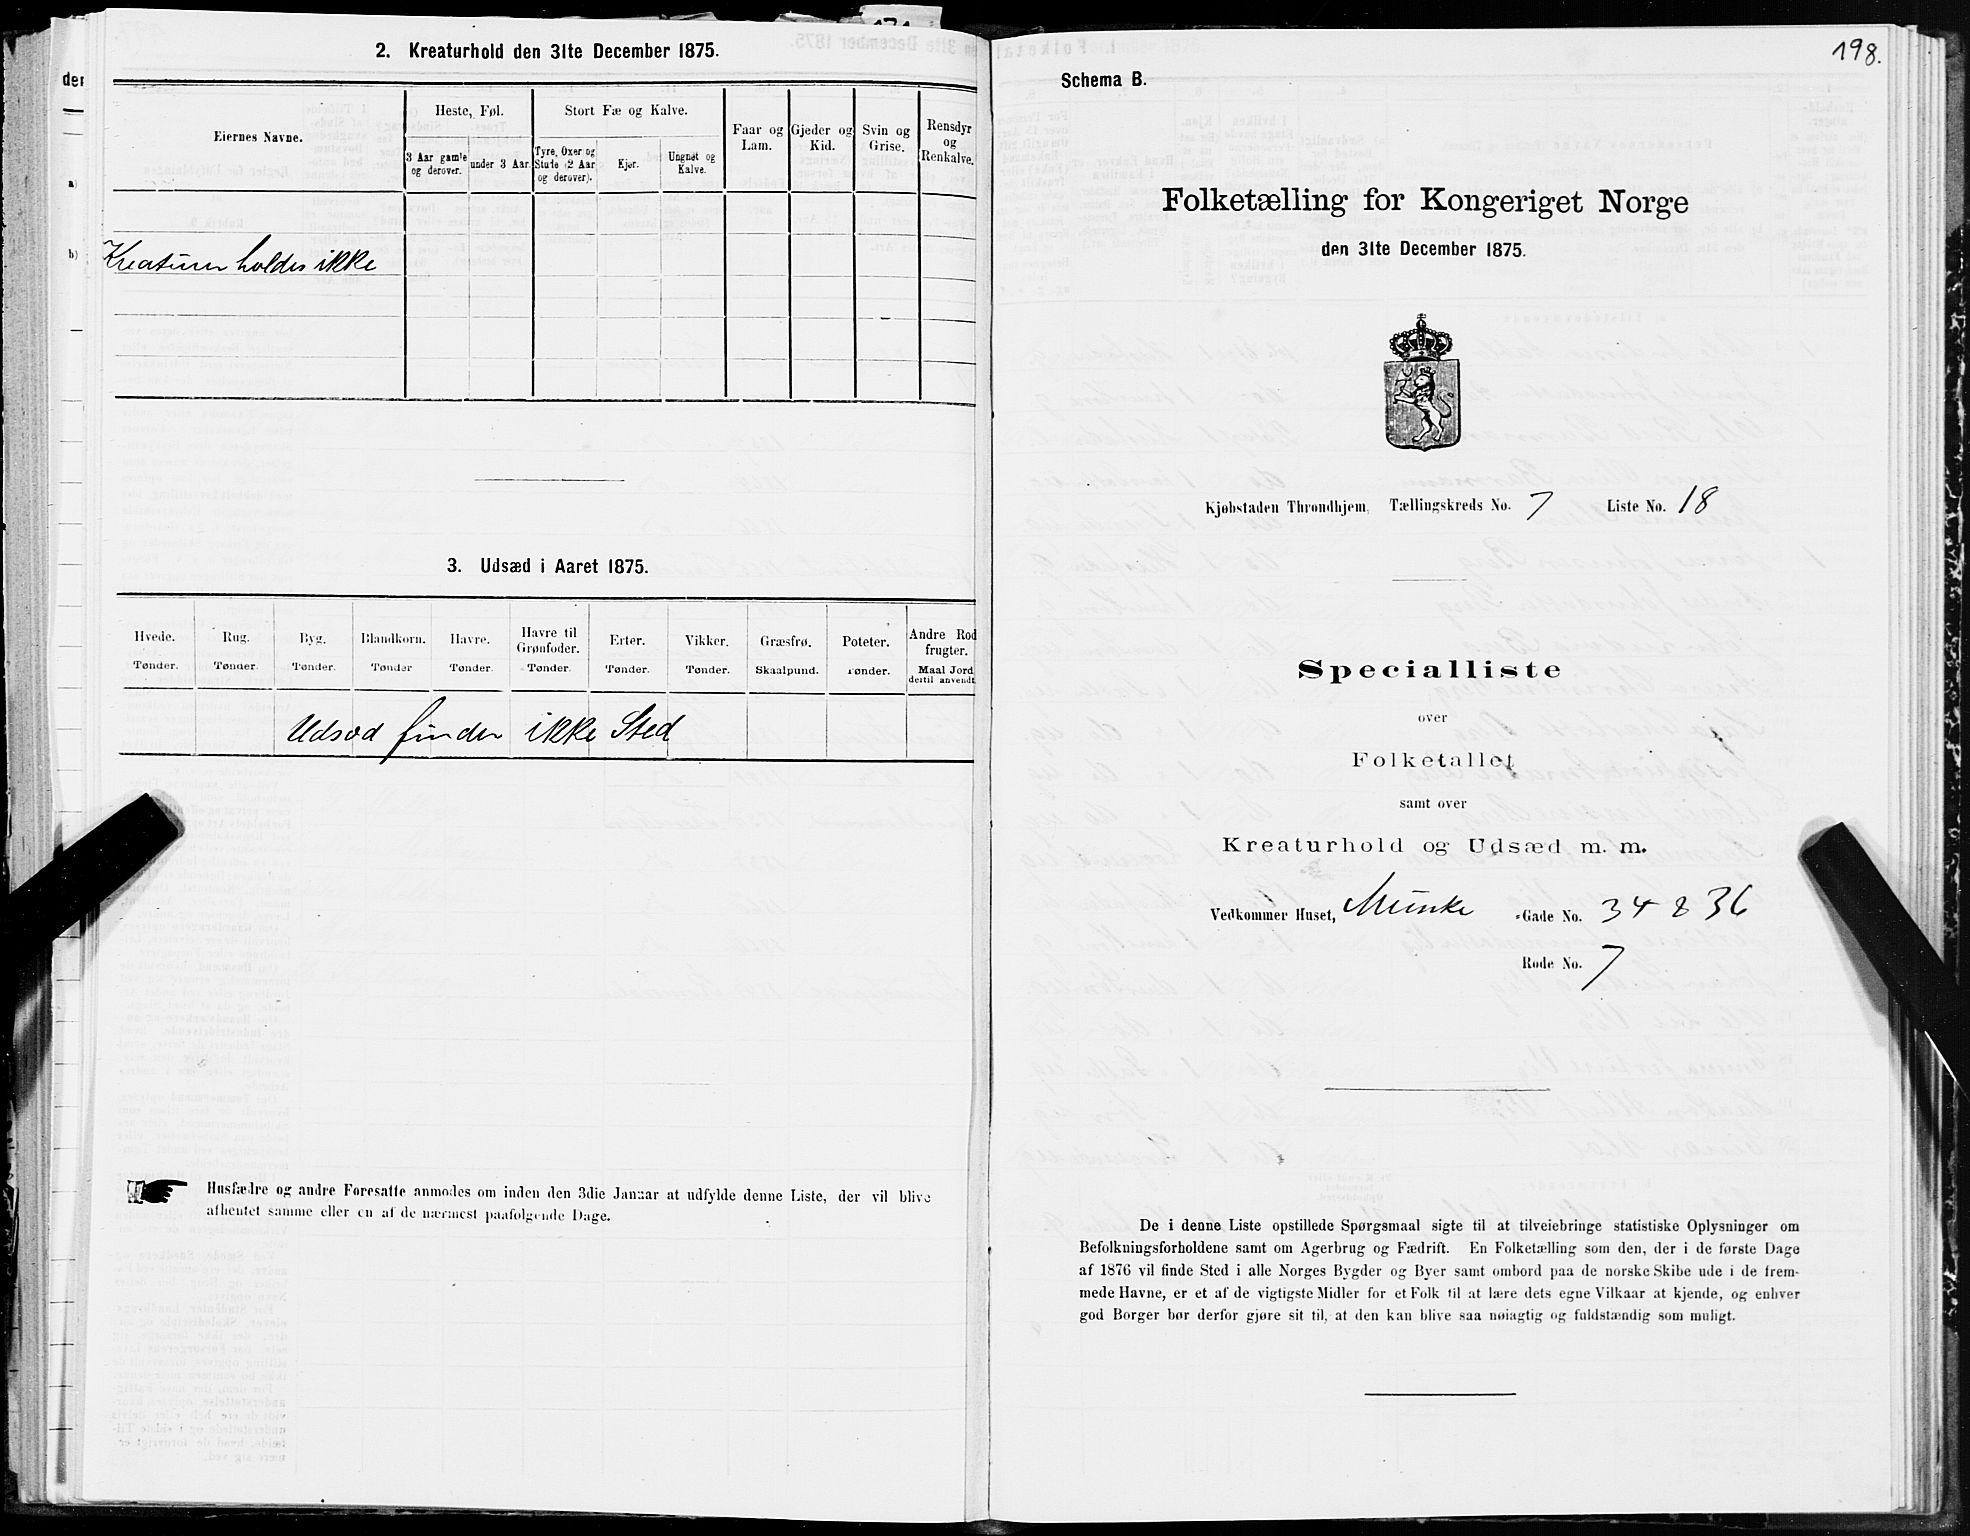 2. Kreaturhold den 31te December 1875.
Eiernes Navne.
Heste, Føl.
3 Aar gamle og derover.
under 3 Aar.
Stort Fæ og Kalve.
Tyre, Oxer og Stude (2 Aar og derover).
Kjør.
Ungnøt og Kalve.
Faar og Lam.
Gjeder og Kid.
Svin og Grise.
Rensdyr og Renkalve.
Kreaturer holdes ikke
3. Udsæd i Aaret 1875.
Hvede. Rug. Byg. Blandkorn. Havre. Havre til Grønfoder. Erter. Vikker. Græsfrø. Poteter. Andre Rodfrugter.
Tønder. Tønder. Tønder. Tønder Tønder. Tønder. Tønder. Tønder. Skaalpund. Tønder. Maal Jord dertil anvendt.
Udsæd finder ikke Sted
Husfædre og andre Foresatte anmodes om inden den 3die Januar at udfylde denne Liste, der vil blive
afhentet samme eller en af de nærmest paafølgende Dage.
198.
Schema B.
Folketælling for Kongeriget Norge
den 31te December 1875.
Kjøbstaden Throndhjem, Tællingskreds No. 7 Liste No. 18
Specialliste
over
Folketallet
samt over
Kreaturhold og Udsæd m. m.
Vedkommer Huset, Munke -Gade No. 34 & 36
Rode No. 7
De i denne Liste opstillede Spørgsmaal sigte til at tilveiebringe statistiske Oplysninger om
Befolkningsforholdene samt om Agerbrug og Fædrift. En Folketælling som den, der i de første Dage
af 1876 vil finde Sted i alle Norges Bygder og Byer samt ombord paa de norske Skibe ude i de frem-
mede Havne, er et af de vigtigste Midler for et Folk til at lære dets egne Vilkaar at kjende, og enhver
god Borger bør derfor gjøre sit til, at den kan blive saa nøiagtig og fuldstændig som muligt.